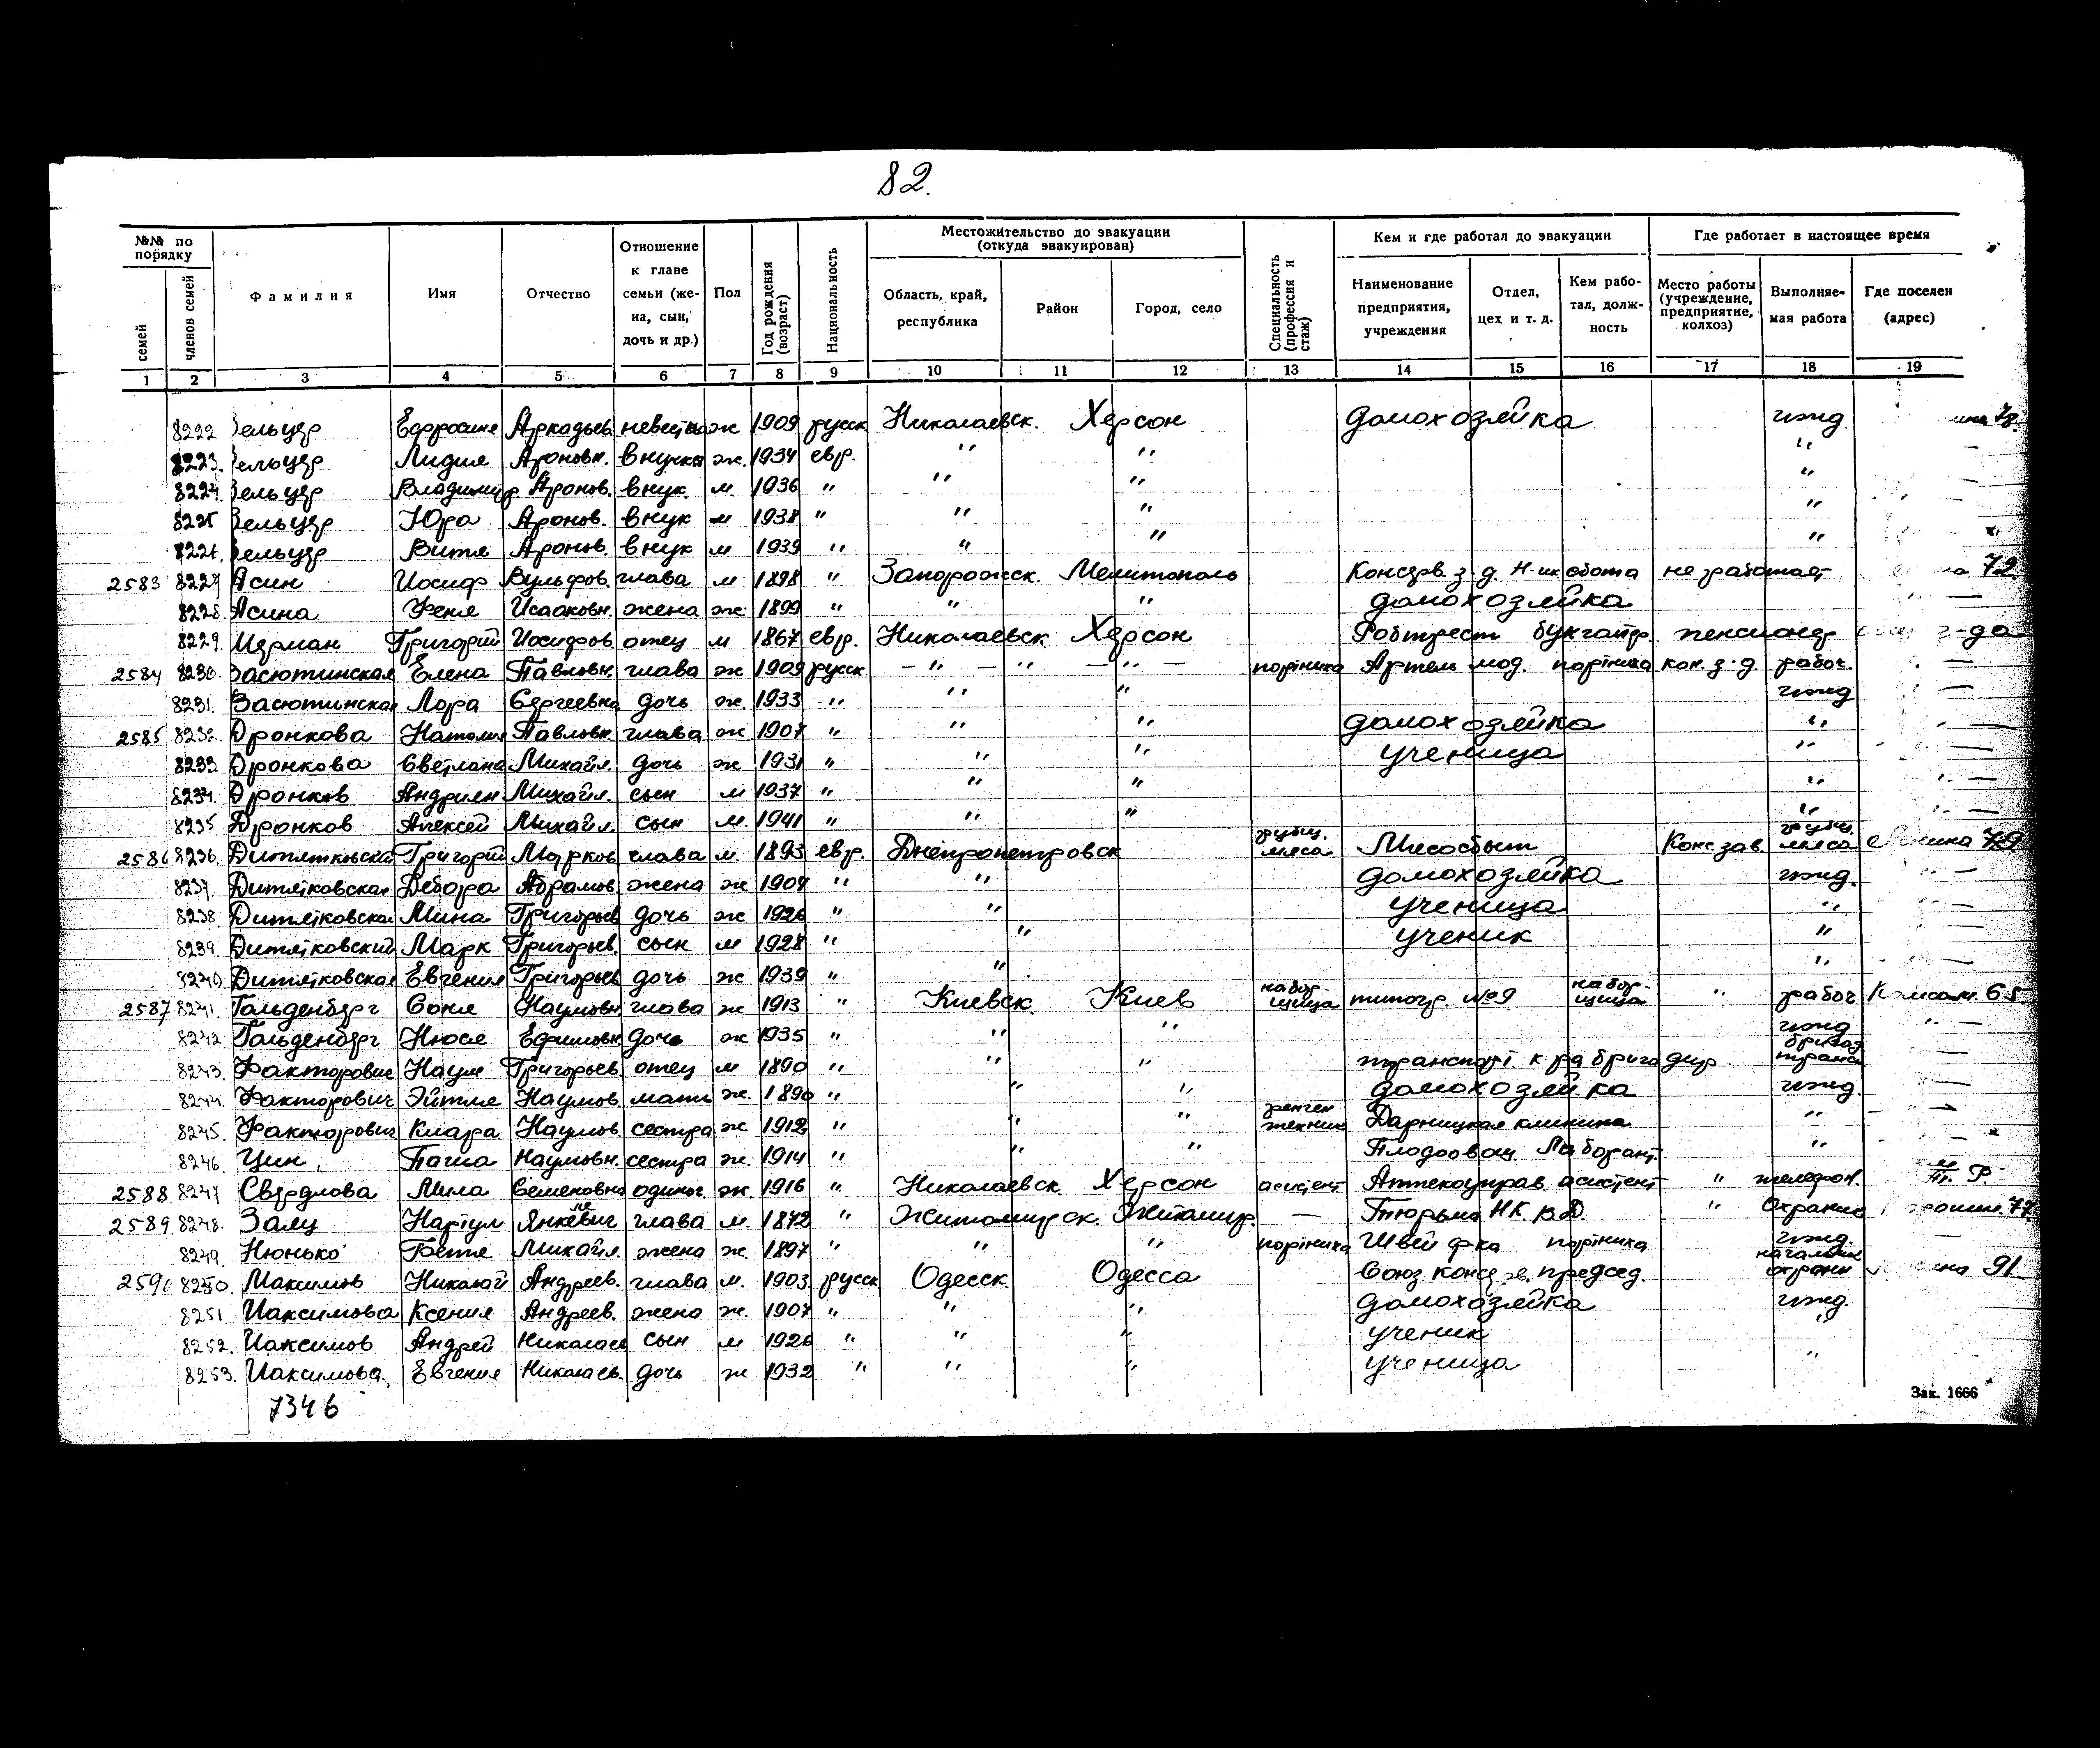 82.
№№ по порядку
семей
членов семей
Фамилия
Имя
Отчество
Отношение к главе семьи (жена, сын, дочь и др.)
Пол
Год рождения (возраст)
Национальность
Местожительство до эвакуации (откуда эвакуирован)
Область, край, республика
Район
Город, село
Специальность (профессия и стаж)
Кем и где работал до эвакуации
Наименование предприятия, учреждения
Отдел, цех и т. д.
Кем работал, должность
Где работает в настоящее время
Место работы (учреждение, предприятие, колхоз)
Выполняемая работа
Где поселен (адрес)
1 2 3 4 5 6 7 8 9 10 11 12 13 14 15 16 17 18 19
8222 ельцер Ефросине Аркадьев невестка ж 1909 русск Николаевск. Херсон домохозяйка ижд
8223. ельцер Лидия Ароновн. внучка ж. 1934 евр. " " "
8224. ельцер Владимир Аронов. внук. м. 1936 " " " "
8225 Зельцер Юра Аронов. внук м 1938 " " " "
8226. ельцер Витя Аронов. внук м 1939 " " " "
2583 8227 Асин Иосиф Вульфов. глава м 1898 " Запорожск. Мелитополь Консерв. з-д. не работает 72
8228. Асина Феня Исааковн. жена ж 1899 " " " домохозяйка —
8229. Григорий Иосифов. отец м 1867 евр. Николаевск. Херсон бухгалтер пенсионер
2584 8230. Засютинская Елена Павловн. глава ж 1909 русск — " — " — " — портниха Артель мод. портниха кон. з-д рабоч. —
8231. Засютинская Лора Сергеевна дочь ж. 1933 " " " ижд —
2585 8232 Дронкова Наталия Павловн. глава ж 1907 " " " домохозяйка " —
8233. Дронкова Светлана Михайл. дочь ж 1931 " " " ученица " —
8234. Дронков Андриян Михайл. сын м 1937 " " " " —
8235 Дронков Алексей Михайл. сын м. 1941 " " " " —
2586 8236. Дитятковский Григорий Марков. глава м. 1893 евр. Днепропетровск мяса Мясосбыт Конс.зав. мяса
8237. Дитятковская Дебора Абрамов. жена ж 1907 " " домохозяйка ижд. —
8238 Дитятковская Мина Григорьев. дочь ж 1926 " " ученица " —
8239. Дитятковский Марк Григорьев. сын м 1928 " " ученик " —
8240. Дитятковская Евгения Григорьев. дочь ж 1939 " " " —
2587 8241. Гольденберг Соня Наумовн. глава ж 1913 " Киевск. Киев наборщица типогр. №9 наборщица " рабоч. Комсом. 65
8242. Гольденберг Нюся Ефимовн. дочь ж 1935 " " " ижд " —
8243. Факторович Наум Григорьев. отец м 1890 " " " бригадир —
8244. Факторович Эйтля Наумов. мать ж. 1890 " " " домохозяйка ижд. —
8245. Факторович Клара Наумов. сестра ж 1912 " " " рентген техник Дарницкая клиника " —
8246. Цин. Паша Наумовн. сестра ж. 1914 " " " Лаборант "
2588 8247 Свердлова Мила Семеновна одиноч. ж. 1916 " Николаевск Херсон асистент Аптекоуправ. асистент " телефон.
2589 8248. Залц Янкевич глава м. 1872 " Житомирск. Житомир. — Тюрьма Н.К.В.Д. " Охрана 77
8249. Нюнько Бетя Михайл. жена ж. 1897 " " " портниха Швей ф-ка портниха ижд. —
2590 8250. Максимов Николай Андреев. глава м. 1903 русск Одесск. Одесса Союз. председ. начальник охраны 91
8251. Максимова Ксения Андреев. жена ж. 1907 " " " домохозяйка ижд.
8252. Максимов Андрей Николаев сын м 1926 " " " ученик "
8253. Максимова. Евгения Николаев. дочь ж 1932 " " " ученица "
7346
Зак. 1666